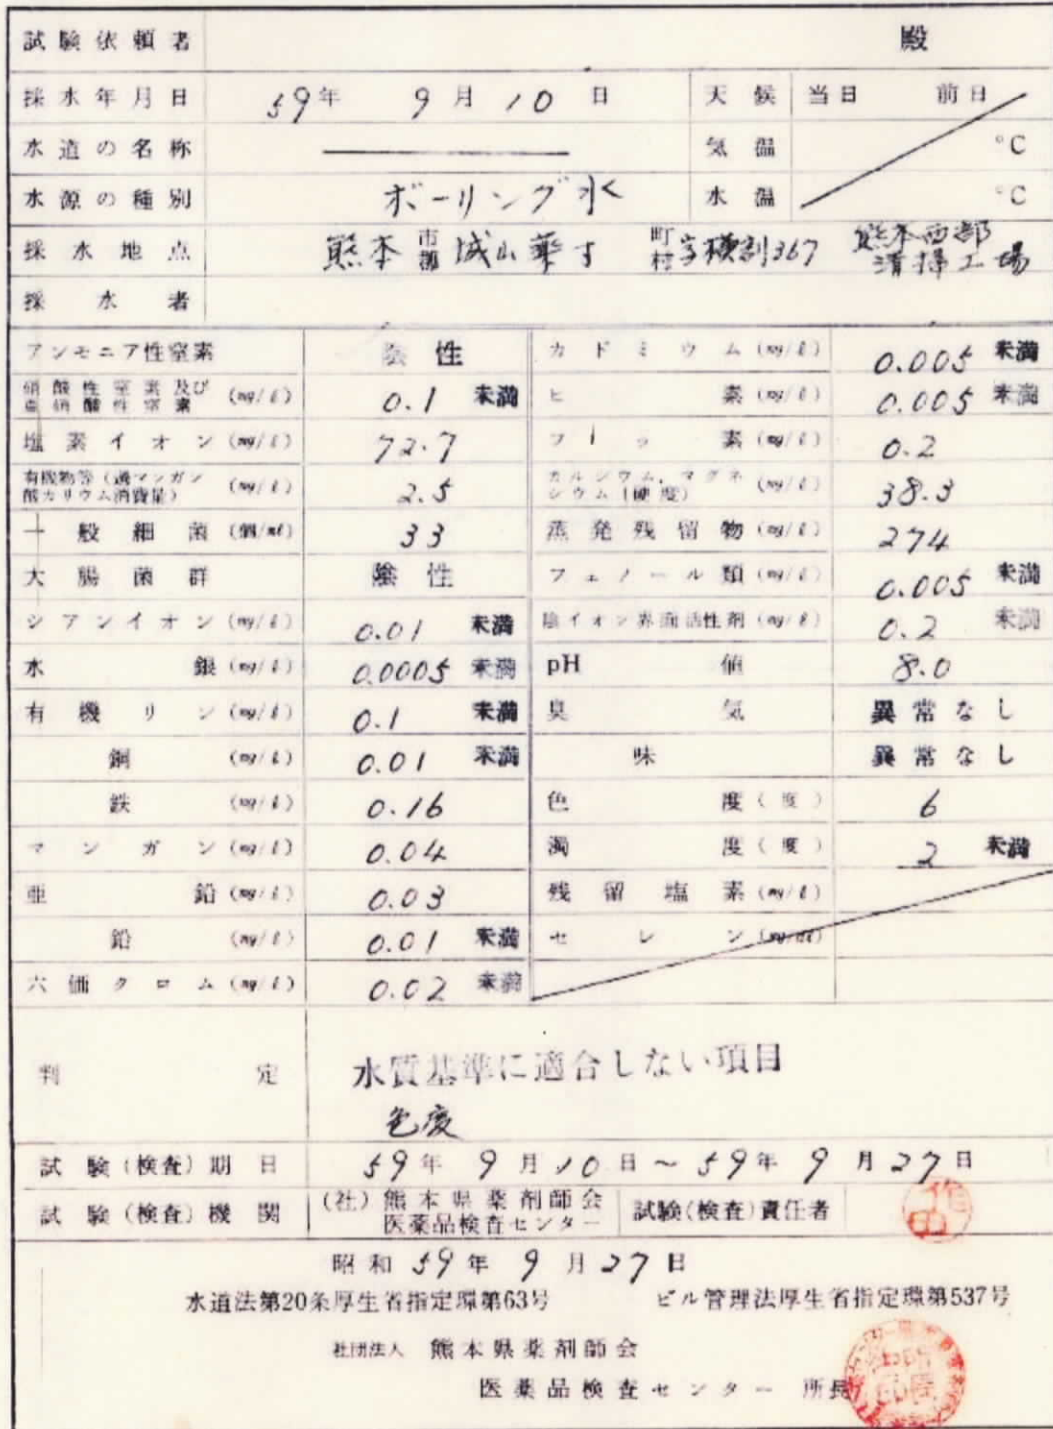 試験依頼者 殿
採水年月日 59年 9月10日 天候 当日 前日
水道の名称 気温 ℃
水源の種別 ボーリング水 水温 ℃
採水地点 熊本 市郡 城山薬師 町村 字横割367 熊本西部清掃工場
採水者
アンモニア性窒素 陰性 カドミウム(mg/ℓ) 0.005 未満
硝酸性窒素及び亜硝酸性窒素 (mg/ℓ) 0.1 未満 ヒ素(mg/ℓ) 0.005 未満
塩素イオン(mg/ℓ) 72.7 フッ素(mg/ℓ) 0.2
有機物等(過マンガン酸カリウム消費量) (mg/ℓ) 2.5 カルシウム、マグネシウム(硬度) (mg/ℓ) 38.3
一般細菌(個/mℓ) 33 蒸発残留物(mg/ℓ) 274
大腸菌群 陰性 フェノール類(mg/ℓ) 0.005 未満
シアンイオン(mg/ℓ) 0.01 未満 陰イオン界面活性剤(mg/ℓ) 0.2 未満
水銀(mg/ℓ) 0.0005 未満 pH値 8.0
有機リン(mg/ℓ) 0.1 未満 臭気 異常なし
銅(mg/ℓ) 0.01 未満 味 異常なし
鉄(mg/ℓ) 0.16 色度(度) 6
マンガン(mg/ℓ) 0.04 濁度(度) 2 未満
亜鉛(mg/ℓ) 0.03 残留塩素(mg/ℓ)
鉛(mg/ℓ) 0.01 未満 セレン
六価クロム(mg/ℓ) 0.02 未満
判定 水質基準に適合しない項目
色度
試験(検査)期日 59年 9月10日～59年 9月27日
試験(検査)機関 (社)熊本県薬剤師会医薬品検査センター 試験(検査)責任者
昭和59年 9月27日
水道法第20条厚生省指定環第63号 ビル管理法厚生省指定環第537号
社団法人 熊本県薬剤師会
医薬品検査センター 所長